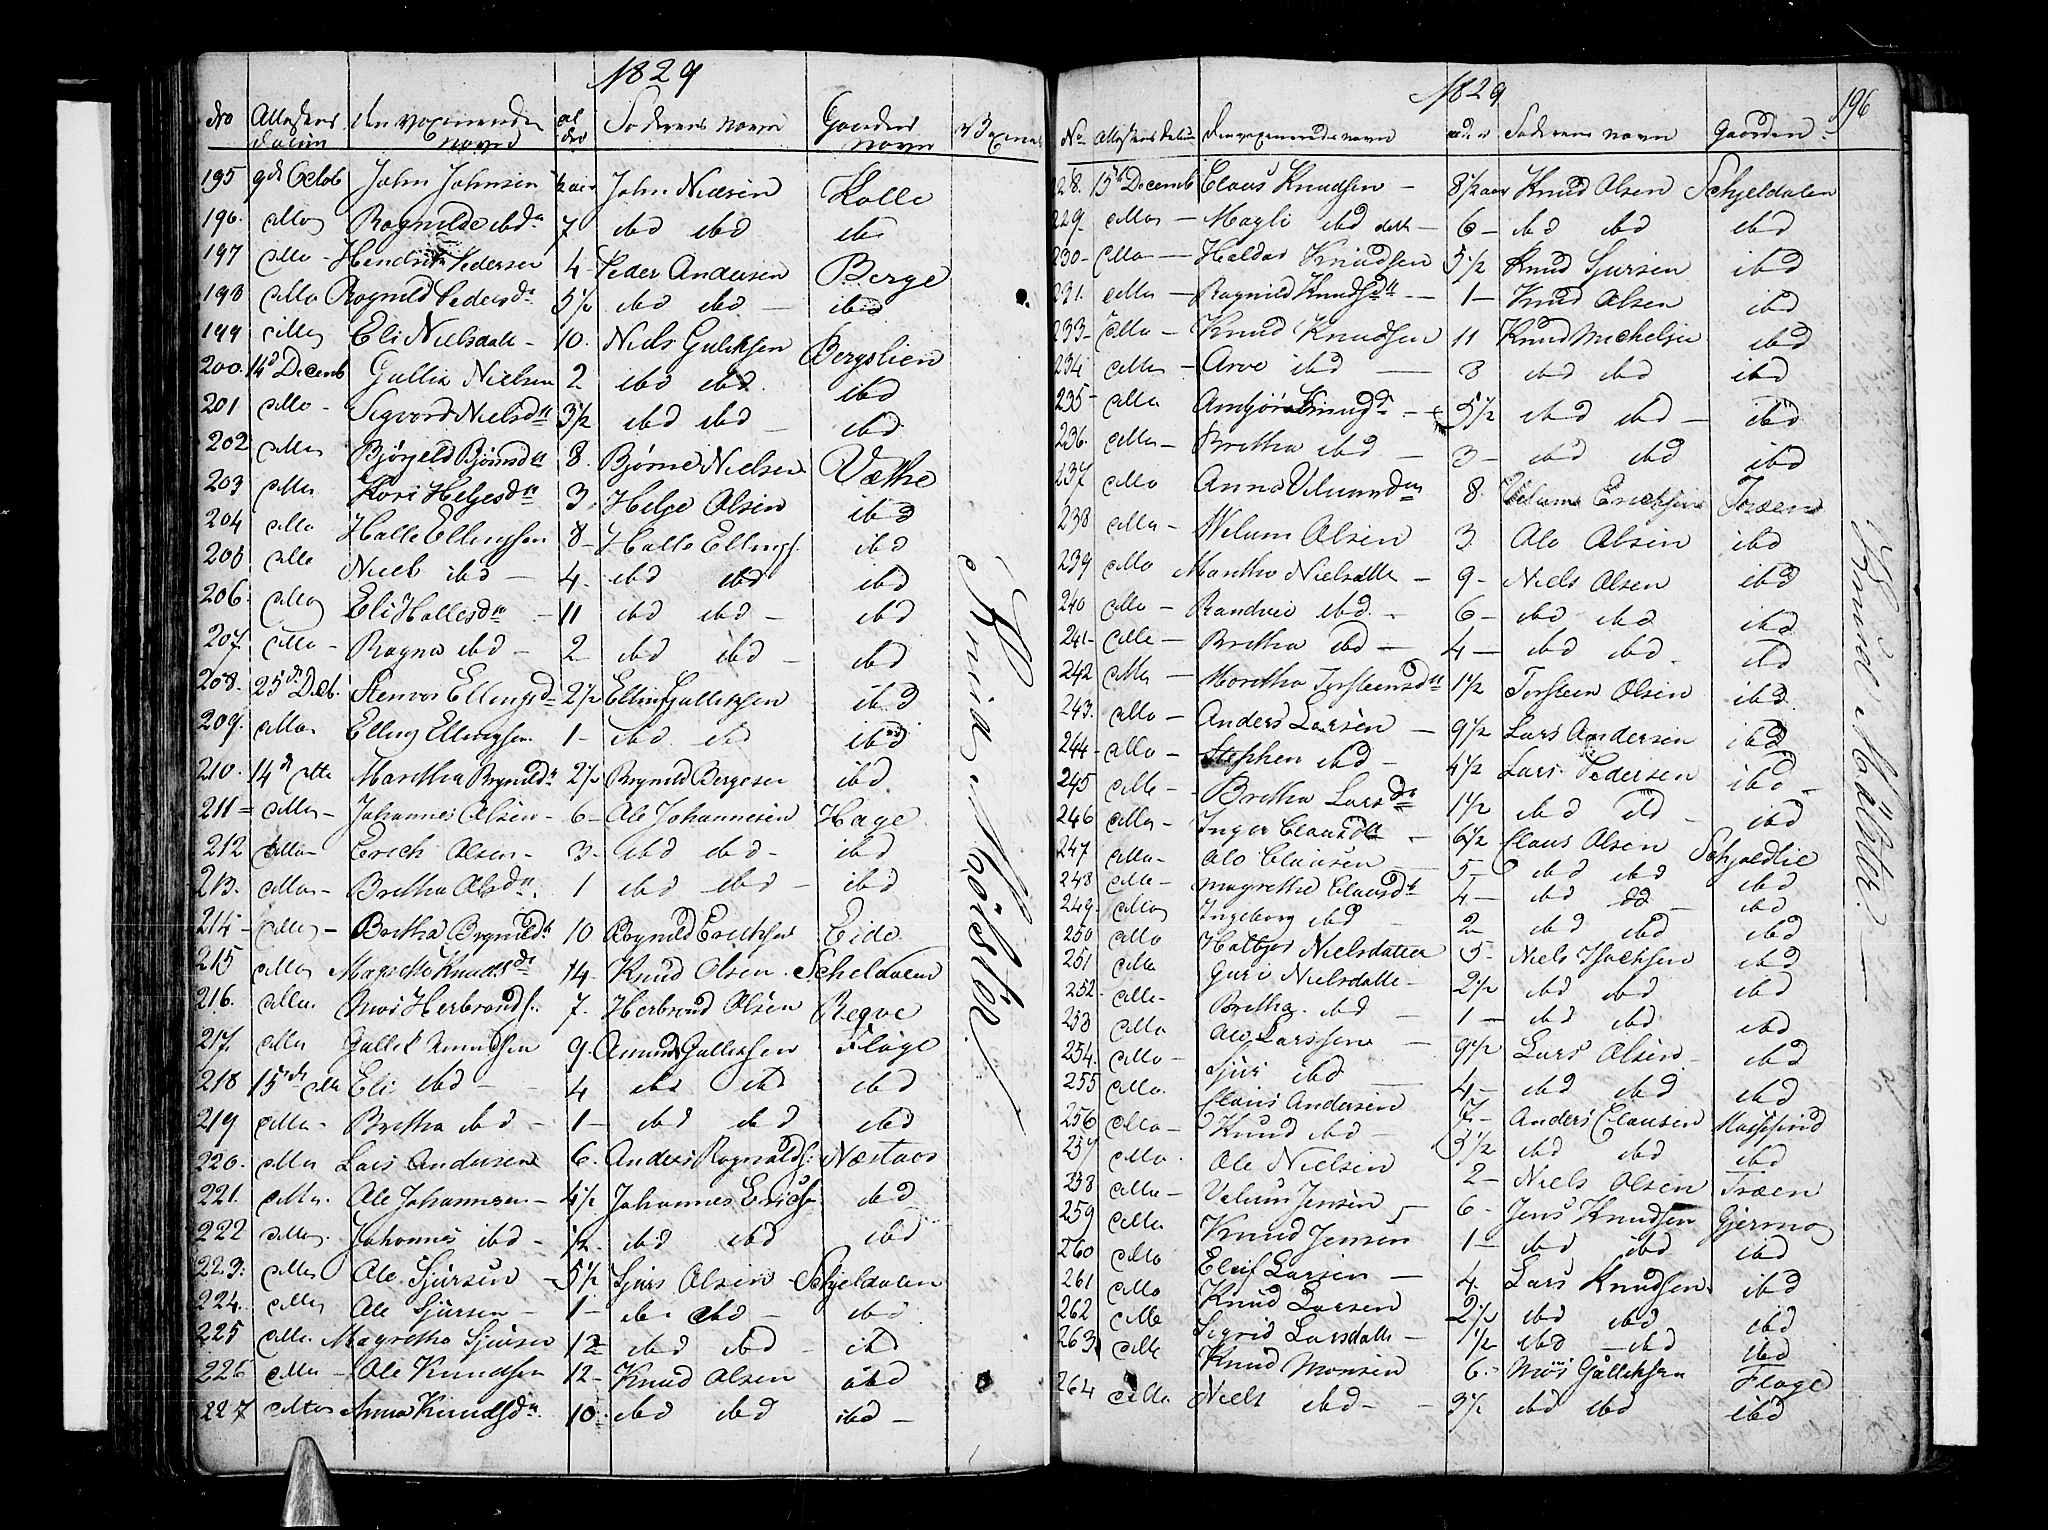 1829
No Attestens datum den vaxinerendes navn alder Faderens navn Gaardens navn
195 9de Octob John Johnsen ½ aar John Nielsen Kolle
196. ditto Ragnilde ibd 7 ibd ibd ib
197 ditto - Pedersen 4 - Peder Andersen Berge
198 ditto Ragnild Pedersdr 5½ ibd ibd - ibid
199 ditto Eli Nielsdatt - 10. Niels Gulliksen Bergslien
200. 14d Decemb Gullik Nielsen 2 ibd ibd. ibd
201 ditto - Sigvord Nielsdtr 3½ ibd ibd - ibd.
202 ditto Bjørgeld Bjørnsdtr 8. Bjørne Nielsen Væthe
203 ditto Kari Helgesdtr 3. Helge Olsen ibd
204 ditto Halle Ellingsen 8 - Halle Ellings. ibd
205 ditto Niels ibd - 4. ibd ibd ibd
206. ditto Eli Hallesdtr - 11 ibd ibd - ibd
207. ditto - Ragna ibd - 2 ibd ibd - ibd
208. 25de Dcb. Stenvor Ellingsd 2½ Elling Gulliksen ibd
209. ditto Elling Ellingsen 1 - ibd ibd ibd
210. 14de ditto Maretha Brynildsdr 2½ Brynild Bergesen ibd.
211 = ditto - Johannes Olsen - 6 - Ole Johannesen Hage
212 ditto - Erich Olsen - 3 - ibd ibd - ibd
213. ditto - Bretha Olsdtr. 1 ibd ibd - ibd
214 - ditto - Bretha Brynilddr 10 Brynild Erichsen Eide
215 ditto Magretha Knudsdr 14 - Knud Olsen. Scheldalen
216. ditto. Herbrands. 7. Herbrand Olsen Reqve
217. ditto Gullik Amundsen 9. Amund Gulliksen Flage
218 15de ditto Eli ibd - 4 ibd ibd ibd
219 ditto - Bretha ibd - 1 - ibd ibd ibd
220. ditto Lars Andersen 6. Anders Ragnalds: Næstaas
221. ditto. Ole Johannesen - 4½ Johannes Erichs ibd
222 ditto. Johannes ibd - ½. ibd ibd ibd
223: ditto Ole Sjursen - 5½ Sjurs Olsen Schjeldalen
224. ditto Ole Sjursen - 1 - ibd ibd - ibd.
225 ditto. Magretha Sjursen 12 ibd ibd - ibd
226 ditto - Ole Knudsen 12 - Knud Olsen ibd
227 ditto Anna Knudsdtr. 10. ibd ibd ibd -
1829
196
No Attestens datum den vaxinerendes navn alder Faderens navn Gaarden
228. 15de Decemb Claus Knudsen - 8½ aar Knud Olsen Schjeldalen
229 ditto - Magli ibd datt - 6 - ibd ibd ibd
230 - ditto - Haldor Knudsen 5½ Knud Sjursen ibd
231. ditto - Ragnild Knudsdtr - 1 - Knud Olsen ibd
233 - ditto - Knud Knudsen 11 Knud Michelsen ibd
234 ditto - Arve ibd - 8 ibd ibd ibd
235 - ditto Knudsdr - 5½ ibd ibd - ibd
236. ditto - Bretha ibd - 3 - ibd ibd ibd
237 ditto Anna 8. Erichsen Træen
238 ditto - Wilum Olsen 3. Ole Olsen ibd
239 ditto Martha Nielsdtt - 9 - Niels Olsen ibd
240 ditto - Randvei ibd. - 6 - ibd ibd. ibd
241 - ditto - Bretha ibd - 4 - ibd ibd. ibd
242 ditto - Maretha Torsteensdtr 1½ Torsteen Olsen ibd.
243. ditto - Anders Larsen - 9½ Lars Andersen ibd
244 - ditto - Stephen ibd - 4½ Lars Pedersen ibd -
245 ditto - Bretha Larsdr 1½ ibd ibd - ibd
246 ditto - Inger Clausdtr - 6½ Claus Olsen Schjeldlie
247 ditto - Ole Clausen - 5 - ibd ibd ibd
248 ditto - Magrethe Clausdtr 4 - ibd ibd - ibd
249. ditto Ingeborg ibd - 2 ibd ibd ibd
250 ditto Halbjor Nielsdatter 5 - Niels ibd
251 ditto Guri Nielsdatt - 2½ ibd ibd ibd
252. ditto - Bretha. ibd - 1 - ibd ibd. ibd
253 ditto Ole Larssen - 9½ Lars Olsen - ibd
254. ditto - Sjur ibd - 4 - ibd ibd ibd
255 ditto. Claus Andersen 7 - Anders Clausen
256 ditto - Knud ibd - 3½ ibd ibd ibd
257 ditto. Ole Nielsen 2 - Niels Olsen Træen
258 ditto - Velum Jensen - 6. Jens Knudsen Gjerme
259 ditto Knud Jensen 1 - ibd ibd ibd
260 ditto Eleif Larsen - 4. Lars Knudsen ibd
261 ditto Knud Larsen 2½ ibd ibd ibd
262 ditto Sigrid Larsdatt - 1½ ibd - ibd ibd
263. ditto Knud Monsen 6. Gulliksen Flage
264 ditto. Niels ibd - 3½ ibd ibd ibd